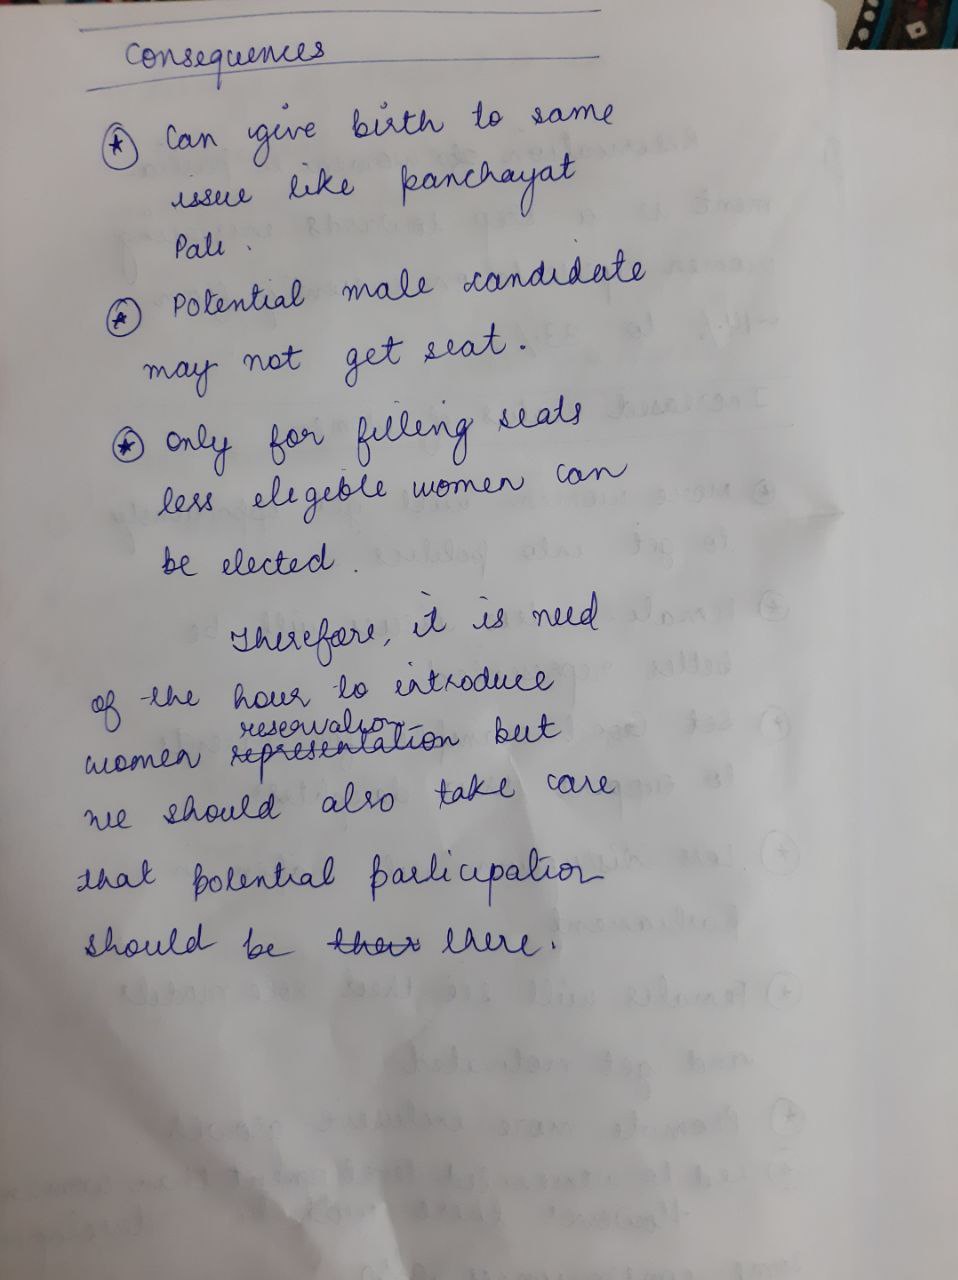 Consequences
Can give birth to same
issue like panchayat
Pati.
Potential male candidate
may not get seat.
Only for filling seats
less elegible women can
be elected.
Therefore, it is need
of the hour to introduce
reservation
women representation but
we should also take care
that potential participation
should be their there.